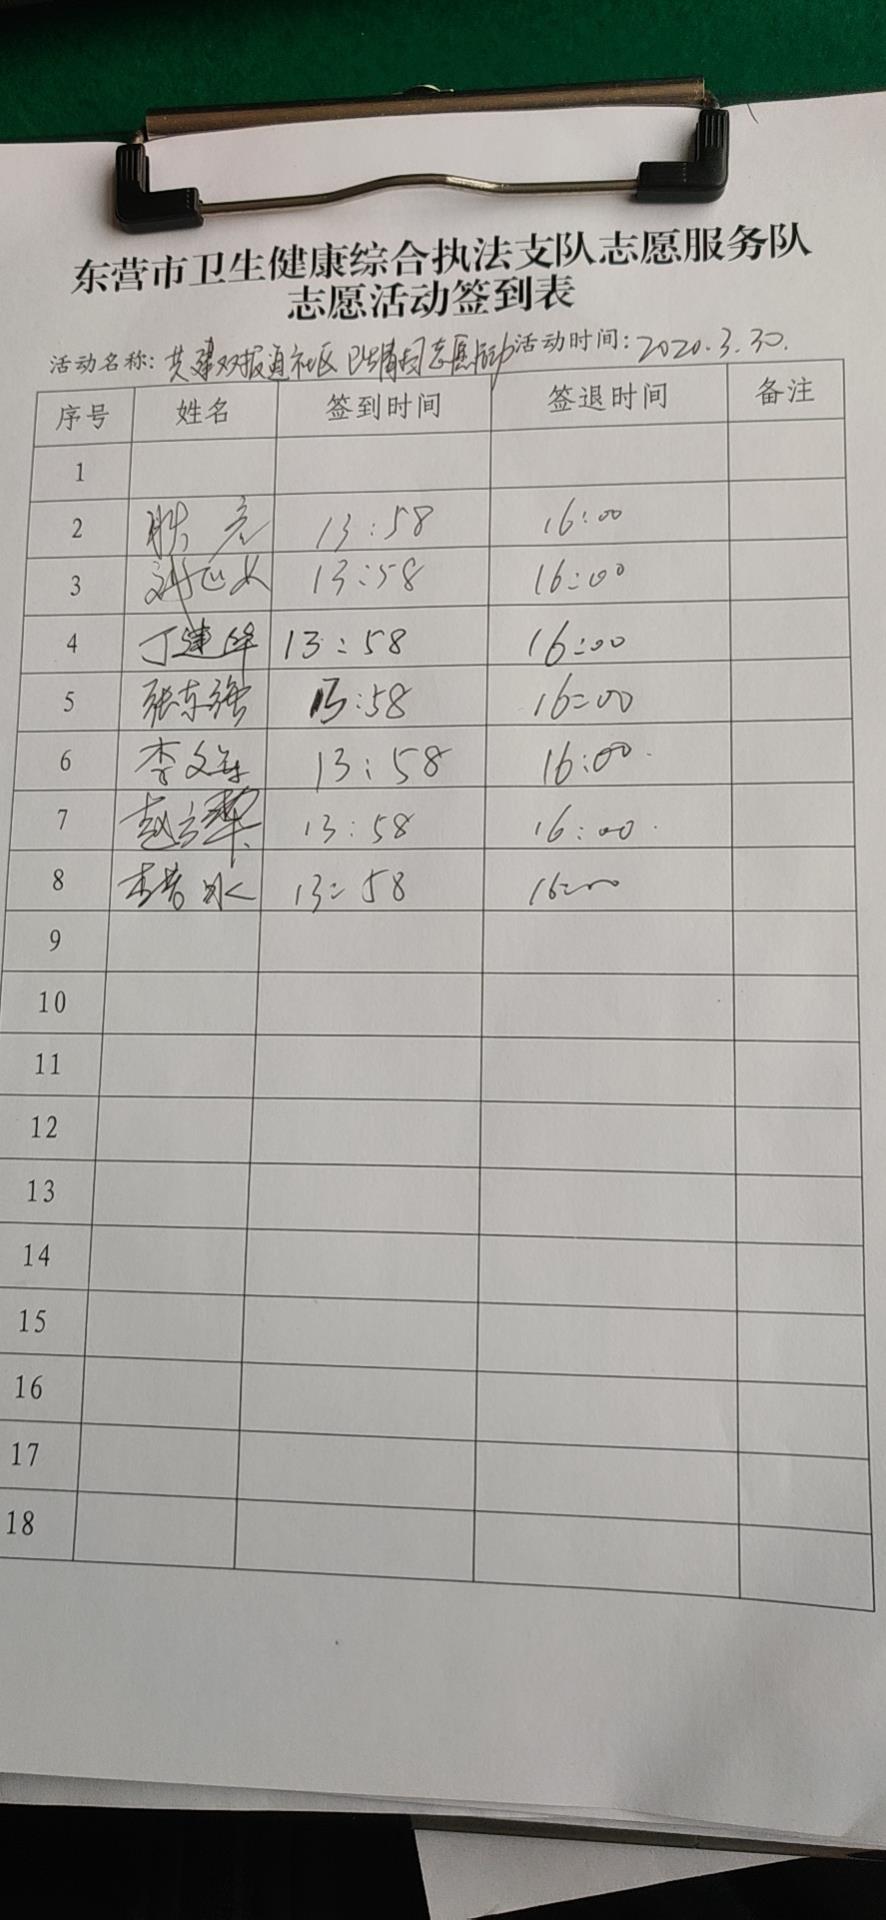 东营市卫生健康综合执法支队志愿服务队
志愿活动签到表
活动名称: 共建双报通社区 志愿活动 活动时间: 2020.3.30.
序号 姓名 签到时间 签退时间 备注
1
2 13:58 16:00
3 13:58 16:00
4 丁建华 13:58 16:00
5 张东强 13:58 16:00
6 李文军 13:58 16:00
7 13:58 16:00
8 13:58 16:00
9
10
11
12
13
14
15
16
17
18